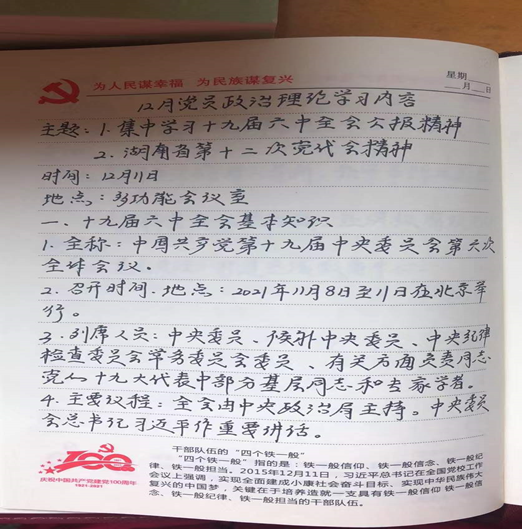 为人民谋幸福 为民族谋复兴
星期
月 日
12月党员政治理论学习内容
主题：1.集中学习十九届六中全会公报精神
2.湖南省第十二次党代会精神
时间：12月11日
地点：多功能会议室
一、十九届六中全会基本知识
1.全称：中国共产党第十九届中央委员会第六次
全体会议。
2.召开时间.地点：2021年11月8日至11日在北京举
行。
3.列席人员：中央委员、候补中央委员、中央纪律
检查委员会常务委员会委员、有关方面负责同志
党的十九大代表中部分基层同志和专家学者。
4.主要议程：全会由中央政治局主持。中央委员
会总书记习近平作重要讲话。
干部队伍的“四个铁一般”
“四个铁一般”指的是：铁一般信仰、铁一般信念、铁一般纪
律、铁一般担当。2015年12月11日，习近平总书记在全国党校工作
会议上强调，实现全面建成小康社会奋斗目标、实现中华民族伟大
复兴的中国梦，关键在于培养造就一支具有铁一般信仰 铁一般信
念、铁一般纪律、铁一般担当的干部队伍。
100
庆祝中国共产党建党100周年
1921-2021